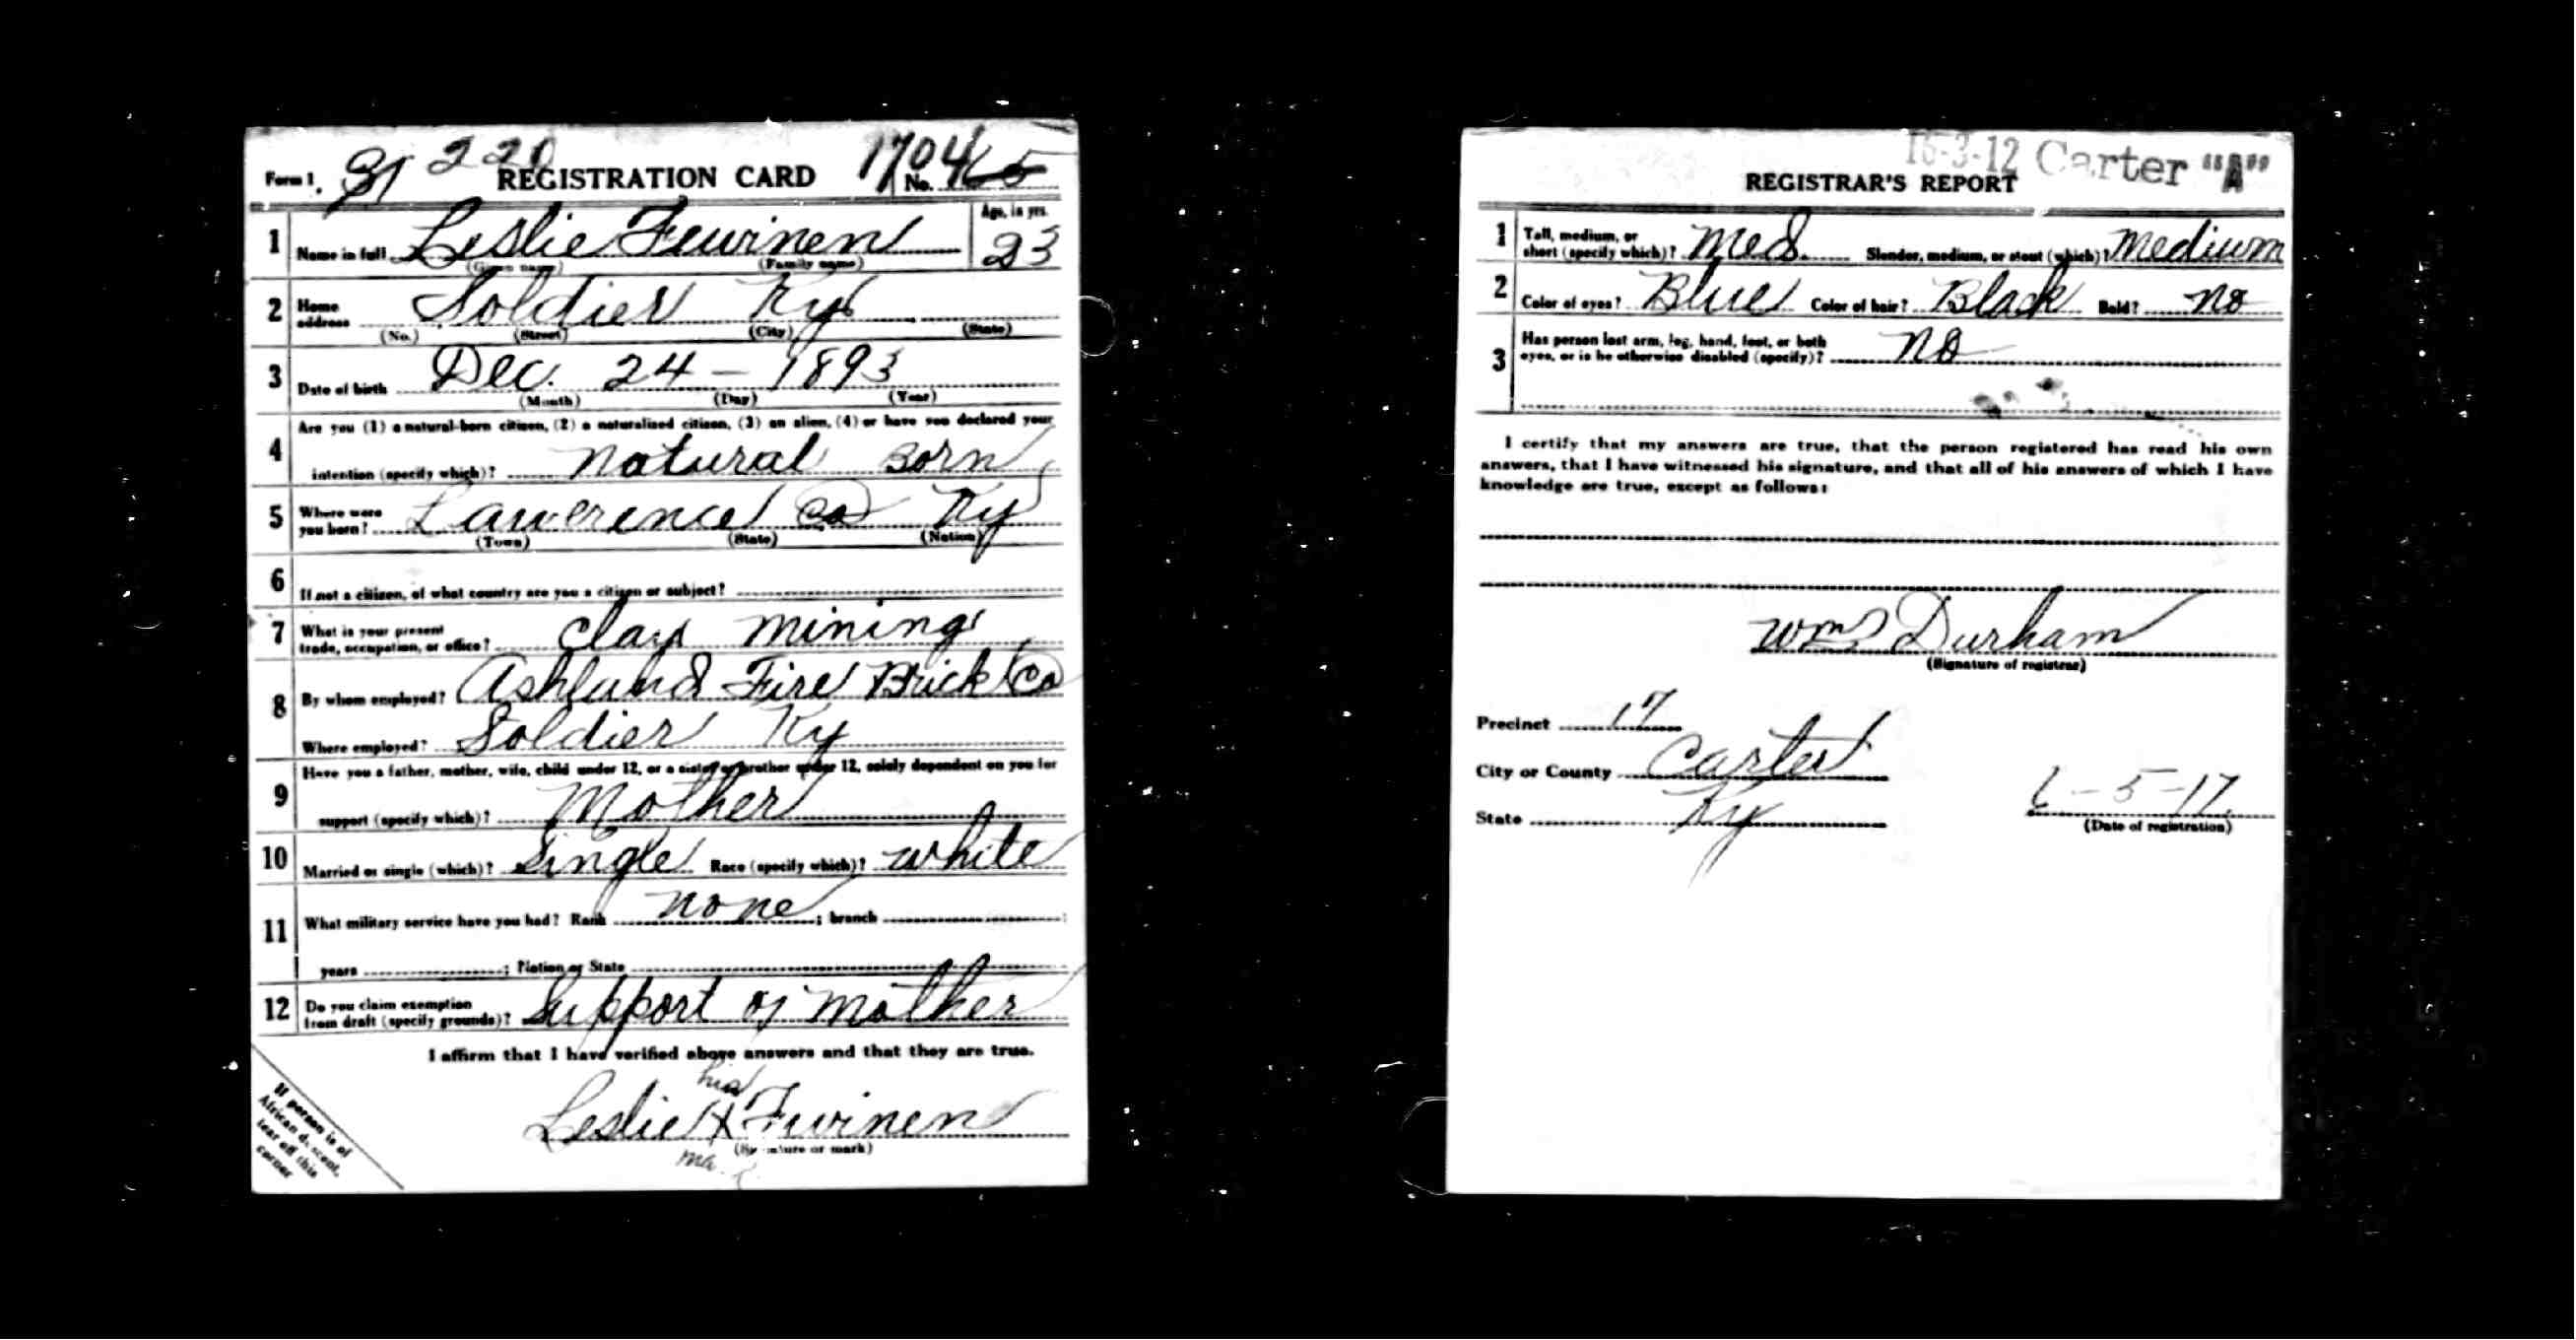 Form 1. 31 220 REGISTRATION CARD 1704 No. 465
1 Name in full Leslie Fewinen Age, in yrs. 23
(Given name) (Family name)
2 Home address Soldier Ky
(No.) (Street) (City) (State)
3 Date of birth Dec. 24 - 1893
(Month) (Day) (Year)
4 Are you (1) a natural-born citizen, (2) a naturalized citizen, (3) an alien, (4) or have you declared your
intention (specify which)? Natural Born
5 Where were you born? Lawrence Co Ky
(Town) (State) (Nation)
6 If not a citizen, of what country are you a citizen or subject?
7 What is your present trade, occupation, or office? Clay mining
8 By whom employed? Ashland Fire Brick Co
Where employed? Soldier Ky
9 Have you a father, mother, wife, child under 12, or a sister or brother under 12, solely dependent on you for
support (specify which)? Mother
10 Married or single (which)? Single Race (specify which)? White
11 What military service have you had? Rank none ; branch
years ; Nation or State
12 Do you claim exemption from draft (specify grounds)? Support of mother
I affirm that I have verified above answers and that they are true.
his
Leslie X Fewinen
(Signature or mark)
mark
If person is of
African descent,
tear off this
corner
15-3-12 Carter "A"
REGISTRAR'S REPORT
1 Tall, medium, or short (specify which)? Med Slender, medium, or stout (which)? Medium
2 Color of eyes? Blue Color of hair? Black Bald? No
3 Has person lost arm, leg, hand, foot, or both
eyes, or is he otherwise disabled (specify)? No
I certify that my answers are true, that the person registered has read his own
answers, that I have witnessed his signature, and that all of his answers of which I have
knowledge are true, except as follows:
Wm Durham
(Signature of registrar)
Precinct 17
City or County Carter
State Ky 6-5-17
(Date of registration)